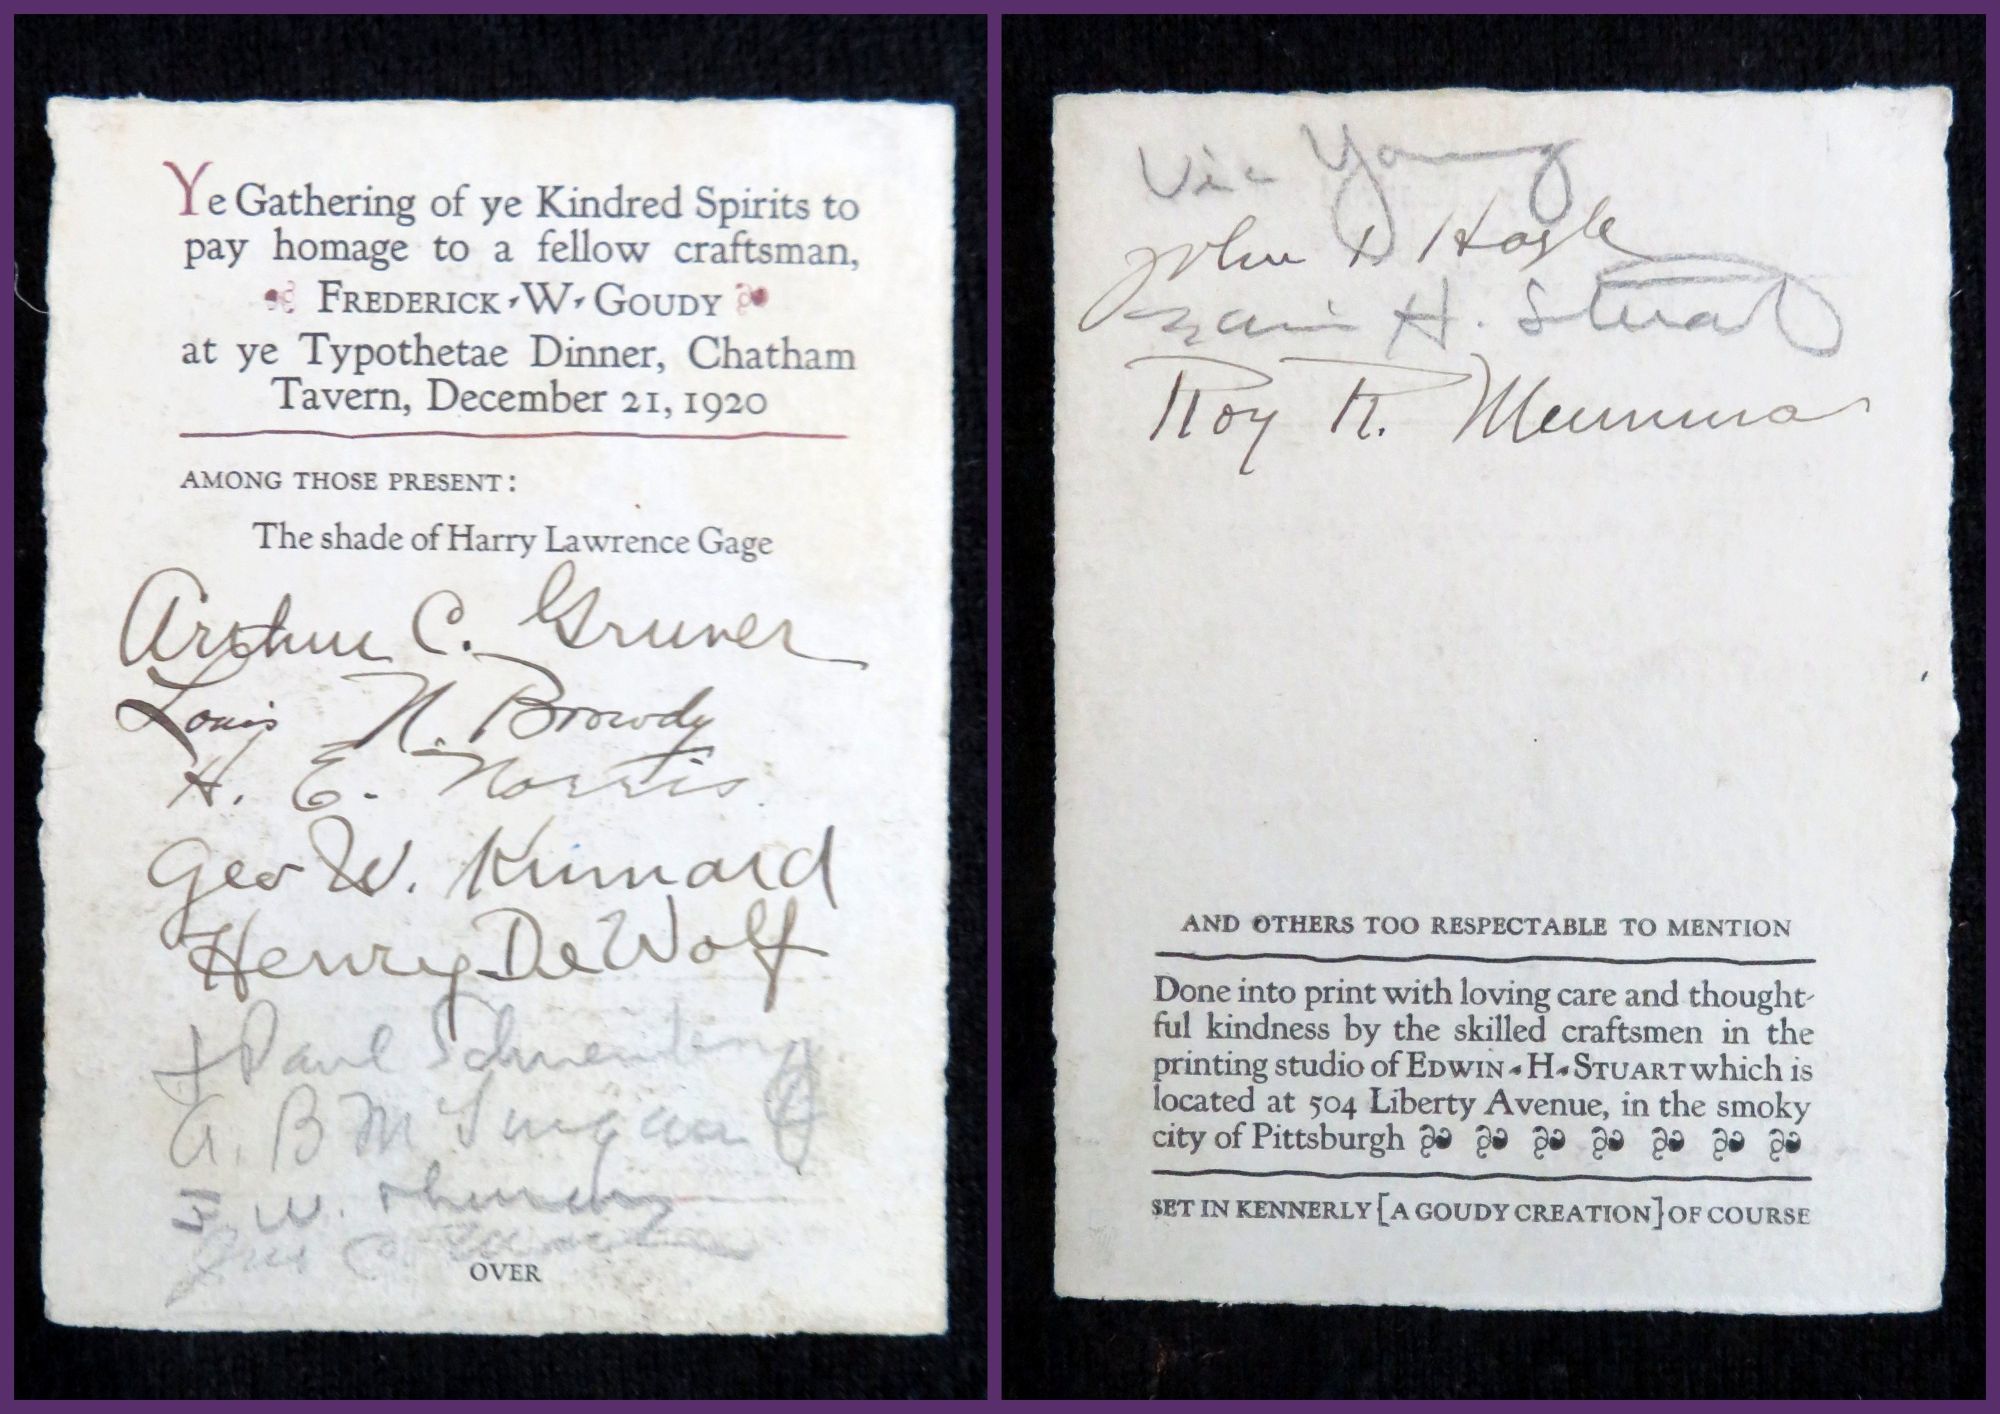 Ye Gathering of ye Kindred Spirits to
pay homage to a fellow craftsman,
FREDERICK W GOUDY
at ye Typothetae Dinner, Chatham
Tavern, December 21, 1920
AMONG THOSE PRESENT:
The shade of Harry Lawrence Gage
Arthur C. Gruver
Louis N. Browdy
H. E. Norris
Geo W. Kinnard
Henry DeWolf
Paul
A. B.
W.
OVER
Vic Young
John D Hogle
H. Stuart
Roy R. Mumma
AND OTHERS TOO RESPECTABLE TO MENTION
Done into print with loving care and thought-
ful kindness by the skilled craftsmen in the
printing studio of EDWIN H STUART which is
located at 504 Liberty Avenue, in the smoky
city of Pittsburgh
SET IN KENNERLY [A GOUDY CREATION] OF COURSE